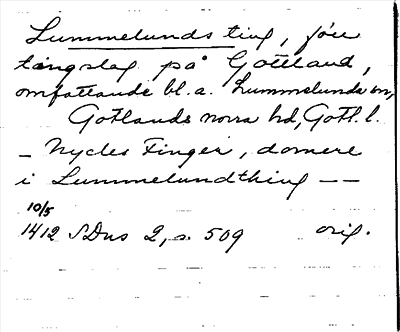 Lummelunds ting, förr
tingslag på Gottland,
omfattande bl. a. Lummelunda sn,
Gotlands norra hd, Gotl. l.
_ Nycles Finger, domere
i Lummelundthing — —
10/5
1412 SDns 2, s. 509 orig.